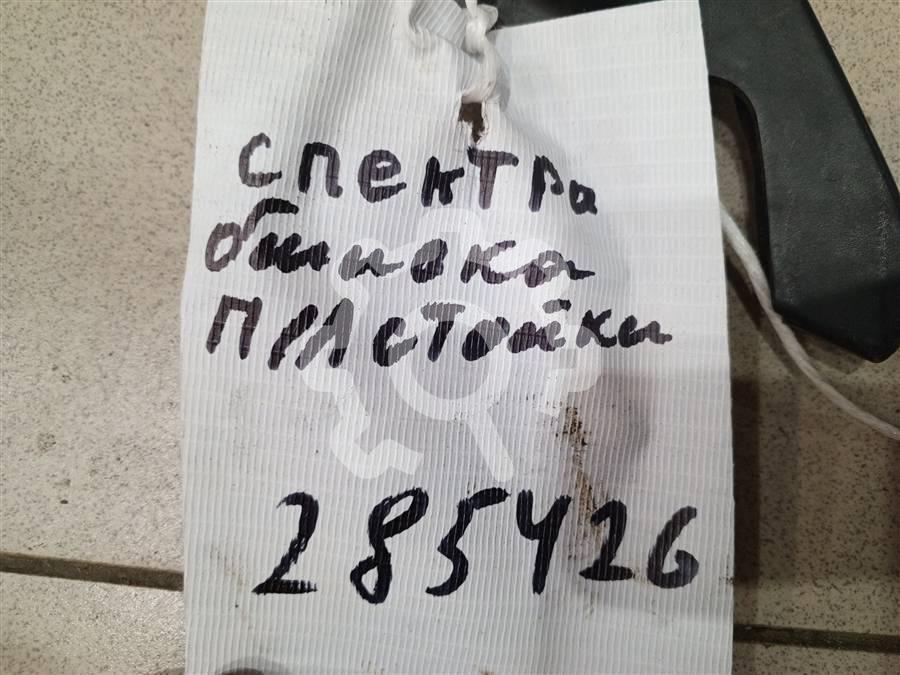 Спектра
обшивка
П П стойки
285426